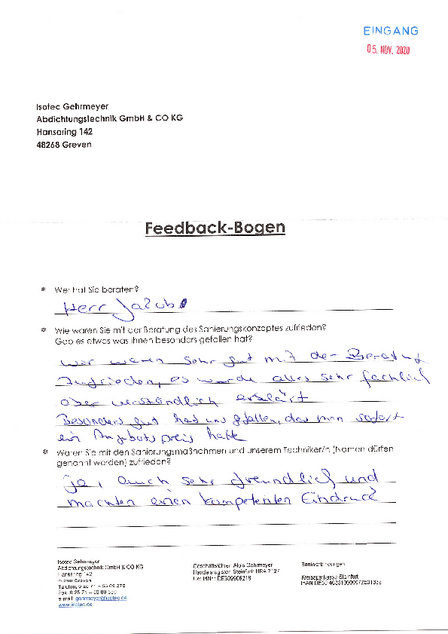 EINGANG
05. NOV. 2020
Isotec Gehrmeyer
Abdichtungstechnik GmbH & CO KG
Hansaring 142
48268 Greven
Feedback-Bogen
Wer hat Sie beraten?
Herr Jacobs
Wie waren Sie mit der Beratung des Sanierungskonzeptes zufrieden?
Gab es etwas was Ihnen besonders gefallen hat?
wir waren sehr gut mit der Beratung
zufrieden, es wurde alles sehr fachlich
aber verständlich erklärt
Besonders gut hat uns gefallen, das man sofort
ein Angebotspreis hatte
Waren Sie mit den Sanierungsmaßnahmen und unserem Techniker/n (Namen dürfen
genannt werden) zufrieden?
ja, auch sehr freundlich und
machten einen kompetenten Eindruck
Isotec Gehrmeyer
Abdichtungstechnik GmbH & CO KG
Hansaring 142
48268 Greven